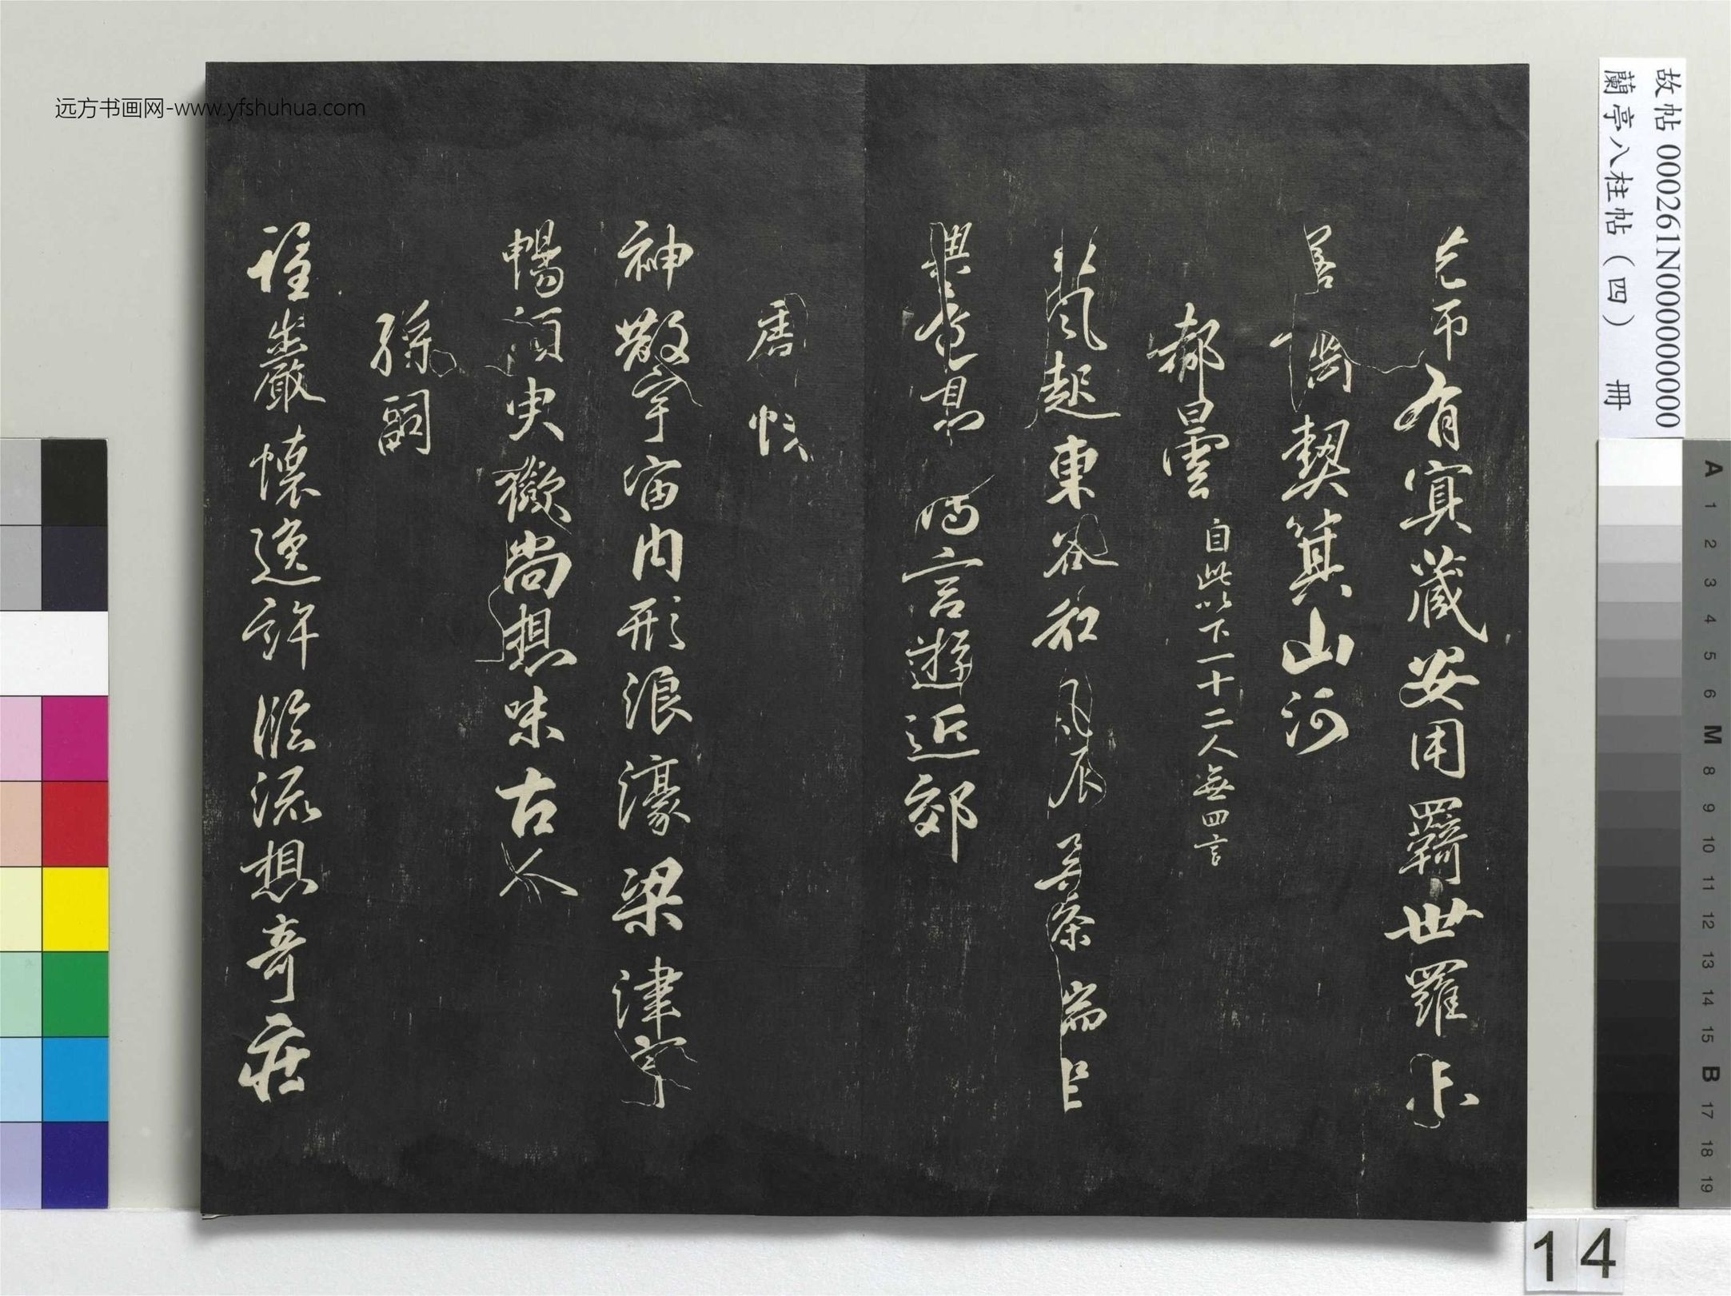 故帖 000261N000000000
蘭亭八柱帖（四） 冊
師有冥藏安用羈世羅未
契箕山河
郗曇 自此以下一十二人無四言
風起東谷和條端
興言遊近郊
神散宇宙內形浪濠梁津
暢須臾歡尚想味古人
孫嗣
望巖懷逸許臨流想奇莊
远方书画网-www.yfshuhua.com
A 1 2 3 4 5 6 M 8 9 10 11 12 13 14 15 B 17 18 19
14